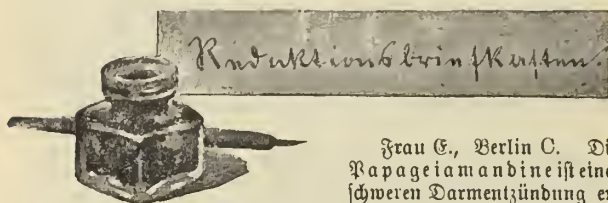 Redaktionsbriefkasten.
Frau E., Berlin C. Di
Papageiamandine ist eine
schweren Darmentzündung er